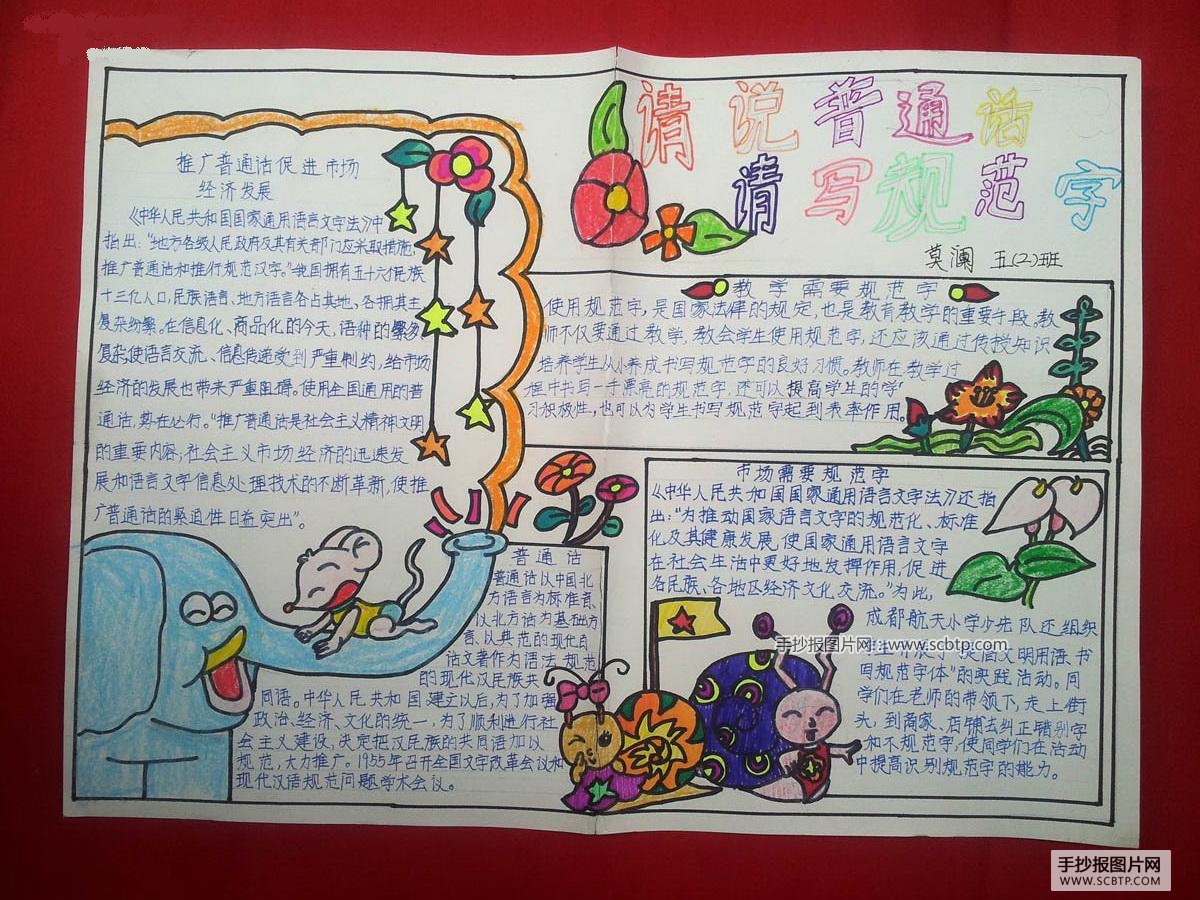 请说普通话
请写规范字
莫澜 五(2)班
推广普通话促进市场
经济发展
《中华人民共和国国家通用语言文字法》中
指出:“地方各级人民政府及其有关部门应采取措施,
推广普通话和推行规范汉字。”我国拥有五十六个民族
十三亿人口,民族语言、地方语言各占其地,各拥其主
复杂纷繁。在信息化、商品化的今天,语种的繁多
复杂使语言交流、信息传递受到严重制约,给市场
经济的发展也带来严重阻碍。使用全国通用的普
通话,势在必行。“推广普通话是社会主义精神文明
的重要内容,社会主义市场经济的迅速发
展和语言文字信息处理技术的不断革新,使推
广普通话的紧迫性日益突出”。
教学需要规范字
使用规范字,是国家法律的规定,也是教育教学的重要手段。教
师不仅要通过教学,教会学生使用规范字,还应该通过传授知识
培养学生从小养成书写规范字的良好习惯。教师在教学过
程中书写一手漂亮的规范字,还可以提高学生的学
习积极性,也可以为学生书写规范字起到表率作用。
普通话
普通话以中国北
方语言为标准音、
以北方话为基础方
言、以典范的现代白
话文著作为语法规范
的现代汉民族共
同语。中华人民共和国建立以后,为了加强
政治、经济、文化的统一,为了顺利进行社
会主义建设,决定把汉民族的共同语加以
规范,大力推广。1955年召开全国文字改革会议和
现代汉语规范问题学术会议。
市场需要规范字
《中华人民共和国国家通用语言文字法》还指
出:“为推动国家语言文字的规范化、标准
化及其健康发展,使国家通用语言文字
在社会生活中更好地发挥作用,促进
各民族、各地区经济文化交流。”为此,
成都航天小学少先队还组织
文明用语、书
写规范字体”的实践活动。同
学们在老师的带领下,走上街
头,到商家、店铺去纠正错别字
和不规范字,使同学们在活动
中提高识别规范字的能力。
手抄报图片网:www.scbtp.com
手抄报图片网
WWW.SCBTP.COM